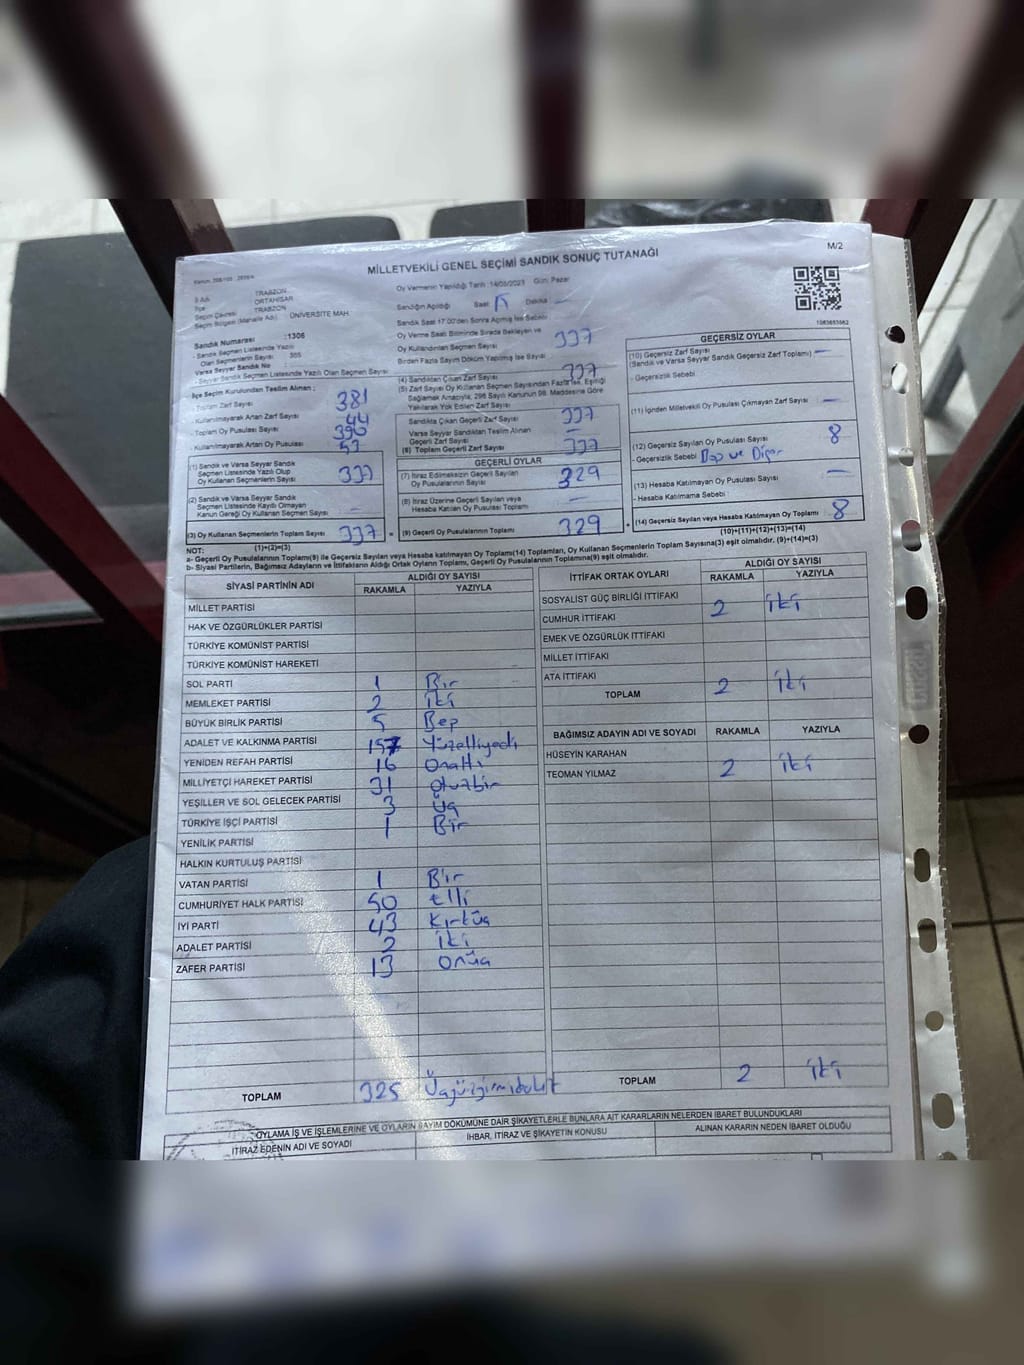 MİLLETVEKİLİ GENEL SEÇİMİ SANDIK SONUÇ TUTANAĞI
M/2
İl Adı TRABZON
İlçe ORTAHİSAR
Seçim Çevresi TRABZON
Seçim Bölgesi (Mahalle Adı) ÜNİVERSİTE MAH.
Oy Vermenin Yapıldığı Tarih :14/05/2023 Gün: Pazar
Sandığın Açıldığı Saat Dakika —
1063653562
Sandık Numarası :1306
- Sandık Seçmen Listesinde Yazılı
Olan Seçmenlerin Sayısı
Varsa Seyyar Sandık No :
- Seyyar Sandık Seçmen Listesinde Yazılı Olan Seçmen Sayısı
Sandık Saat 17:00'den Sonra Açılmış İse Sebebi
Oy Verme Saati Bitiminde Sırada Bekleyen ve
Oy Kullandırılan Seçmen Sayısı 337
Birden Fazla Sayım Döküm Yapılmış İse Sayısı
İlçe Seçim Kurulundan Teslim Alınan ;
- Toplam Zarf Sayısı 381
- Kullanılmayarak Artan Zarf Sayısı 44
- Toplam Oy Pusulası Sayısı 390
- Kullanılmayarak Artan Oy Pusulası 53
(1) Sandık ve Varsa Seyyar Sandık
Seçmen Listesinde Yazılı Olup
Oy Kullanan Seçmenlerin Sayısı 337
(2) Sandık ve Varsa Seyyar Sandık
Seçmen Listesinde Kaydı Olmayan
Kanun Gereği Oy Kullanan Seçmen Sayısı —
(3) Oy Kullanan Seçmenlerin Toplam Sayısı 337
(1)+(2)=(3)
(4) Sandıktan Çıkan Zarf Sayısı 337
(5) Zarf Sayısı Oy Kullanan Seçmen Sayısından Fazla İse, Eşitliği
Sağlamak Amacıyla, 298 Sayılı Kanunun 98. Maddesine Göre
Yakılarak Yok Edilen Zarf Sayısı
Sandıkta Çıkan Geçerli Zarf Sayısı 337
Varsa Seyyar Sandıktan Teslim Alınan
Geçerli Zarf Sayısı —
(6) Toplam Geçerli Zarf Sayısı 337
GEÇERLİ OYLAR
(7) İtiraz Edilmeksizin Geçerli Sayılan
Oy Pusulalarının Sayısı 329
(8) İtiraz Üzerine Geçerli Sayılan veya
Hesaba Katılan Oy Pusulası Toplamı —
(9) Geçerli Oy Pusulalarının Toplamı 329
GEÇERSİZ OYLAR
(10) Geçersiz Zarf Sayısı —
(Sandık ve Varsa Seyyar Sandık Geçersiz Zarf Toplamı)
- Geçersizlik Sebebi
(11) İçinden Milletvekili Oy Pusulası Çıkmayan Zarf Sayısı —
(12) Geçersiz Sayılan Oy Pusulası Sayısı 8
- Geçersizlik Sebebi
(13) Hesaba Katılmayan Oy Pusulası Sayısı —
- Hesaba Katılmama Sebebi
(14) Geçersiz Sayılan veya Hesaba Katılmayan Oy Toplamı 8
(10)+(11)+(12)+(13)=(14)
NOT:
a- Geçerli Oy Pusulalarının Toplamı(9) ile Geçersiz Sayılan veya Hesaba katılmayan Oy Toplamı(14) Toplamları, Oy Kullanan Seçmenlerin Toplam Sayısına(3) eşit olmalıdır. (9)+(14)=(3)
b- Siyasi Partilerin, Bağımsız Adayların ve İttifakların Aldığı Ortak Oyların Toplamı, Geçerli Oy Pusulalarının Toplamına(9) eşit olmalıdır.
SİYASİ PARTİNİN ADI ALDIĞI OY SAYISI
RAKAMLA YAZIYLA
MİLLET PARTİSİ
HAK VE ÖZGÜRLÜKLER PARTİSİ
TÜRKİYE KOMÜNİST PARTİSİ
TÜRKİYE KOMÜNİST HAREKETİ
SOL PARTİ 1 Bir
MEMLEKET PARTİSİ 2 iki
BÜYÜK BİRLİK PARTİSİ 5 Beş
ADALET VE KALKINMA PARTİSİ 157 Yüzelliyedi
YENİDEN REFAH PARTİSİ 16 Onaltı
MİLLİYETÇİ HAREKET PARTİSİ 31 otuzbir
YEŞİLLER VE SOL GELECEK PARTİSİ 3 üç
TÜRKİYE İŞÇİ PARTİSİ 1 Bir
YENİLİK PARTİSİ
HALKIN KURTULUŞ PARTİSİ
VATAN PARTİSİ 1 Bir
CUMHURİYET HALK PARTİSİ 50 Elli
İYİ PARTİ 43 Kırküç
ADALET PARTİSİ 2 iki
ZAFER PARTİSİ 13 Onüç
TOPLAM 325
İTTİFAK ORTAK OYLARI ALDIĞI OY SAYISI
RAKAMLA YAZIYLA
SOSYALİST GÜÇ BİRLİĞİ İTTİFAKI
CUMHUR İTTİFAKI 2 iki
EMEK VE ÖZGÜRLÜK İTTİFAKI
MİLLET İTTİFAKI
ATA İTTİFAKI
TOPLAM 2 iki
BAĞIMSIZ ADAYIN ADI VE SOYADI RAKAMLA YAZIYLA
HÜSEYİN KARAHAN
TEOMAN YILMAZ 2 iki
TOPLAM 2 iki
OYLAMA İŞ VE İŞLEMLERİNE VE OYLARIN SAYIM DÖKÜMÜNE DAİR ŞİKAYETLERLE BUNLARA AİT KARARLARIN NELERDEN İBARET BULUNDUKLARI
İTİRAZ EDENİN ADI VE SOYADI İHBAR, İTİRAZ VE ŞİKAYETİN KONUSU ALINAN KARARIN NEDEN İBARET OLDUĞU